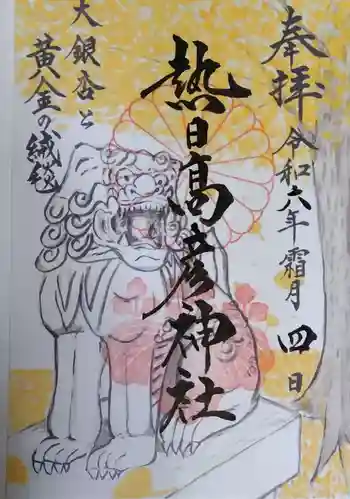 奉拝
令和六年霜月四日
熱日高彦神社
大銀杏と
黄金の絨毯